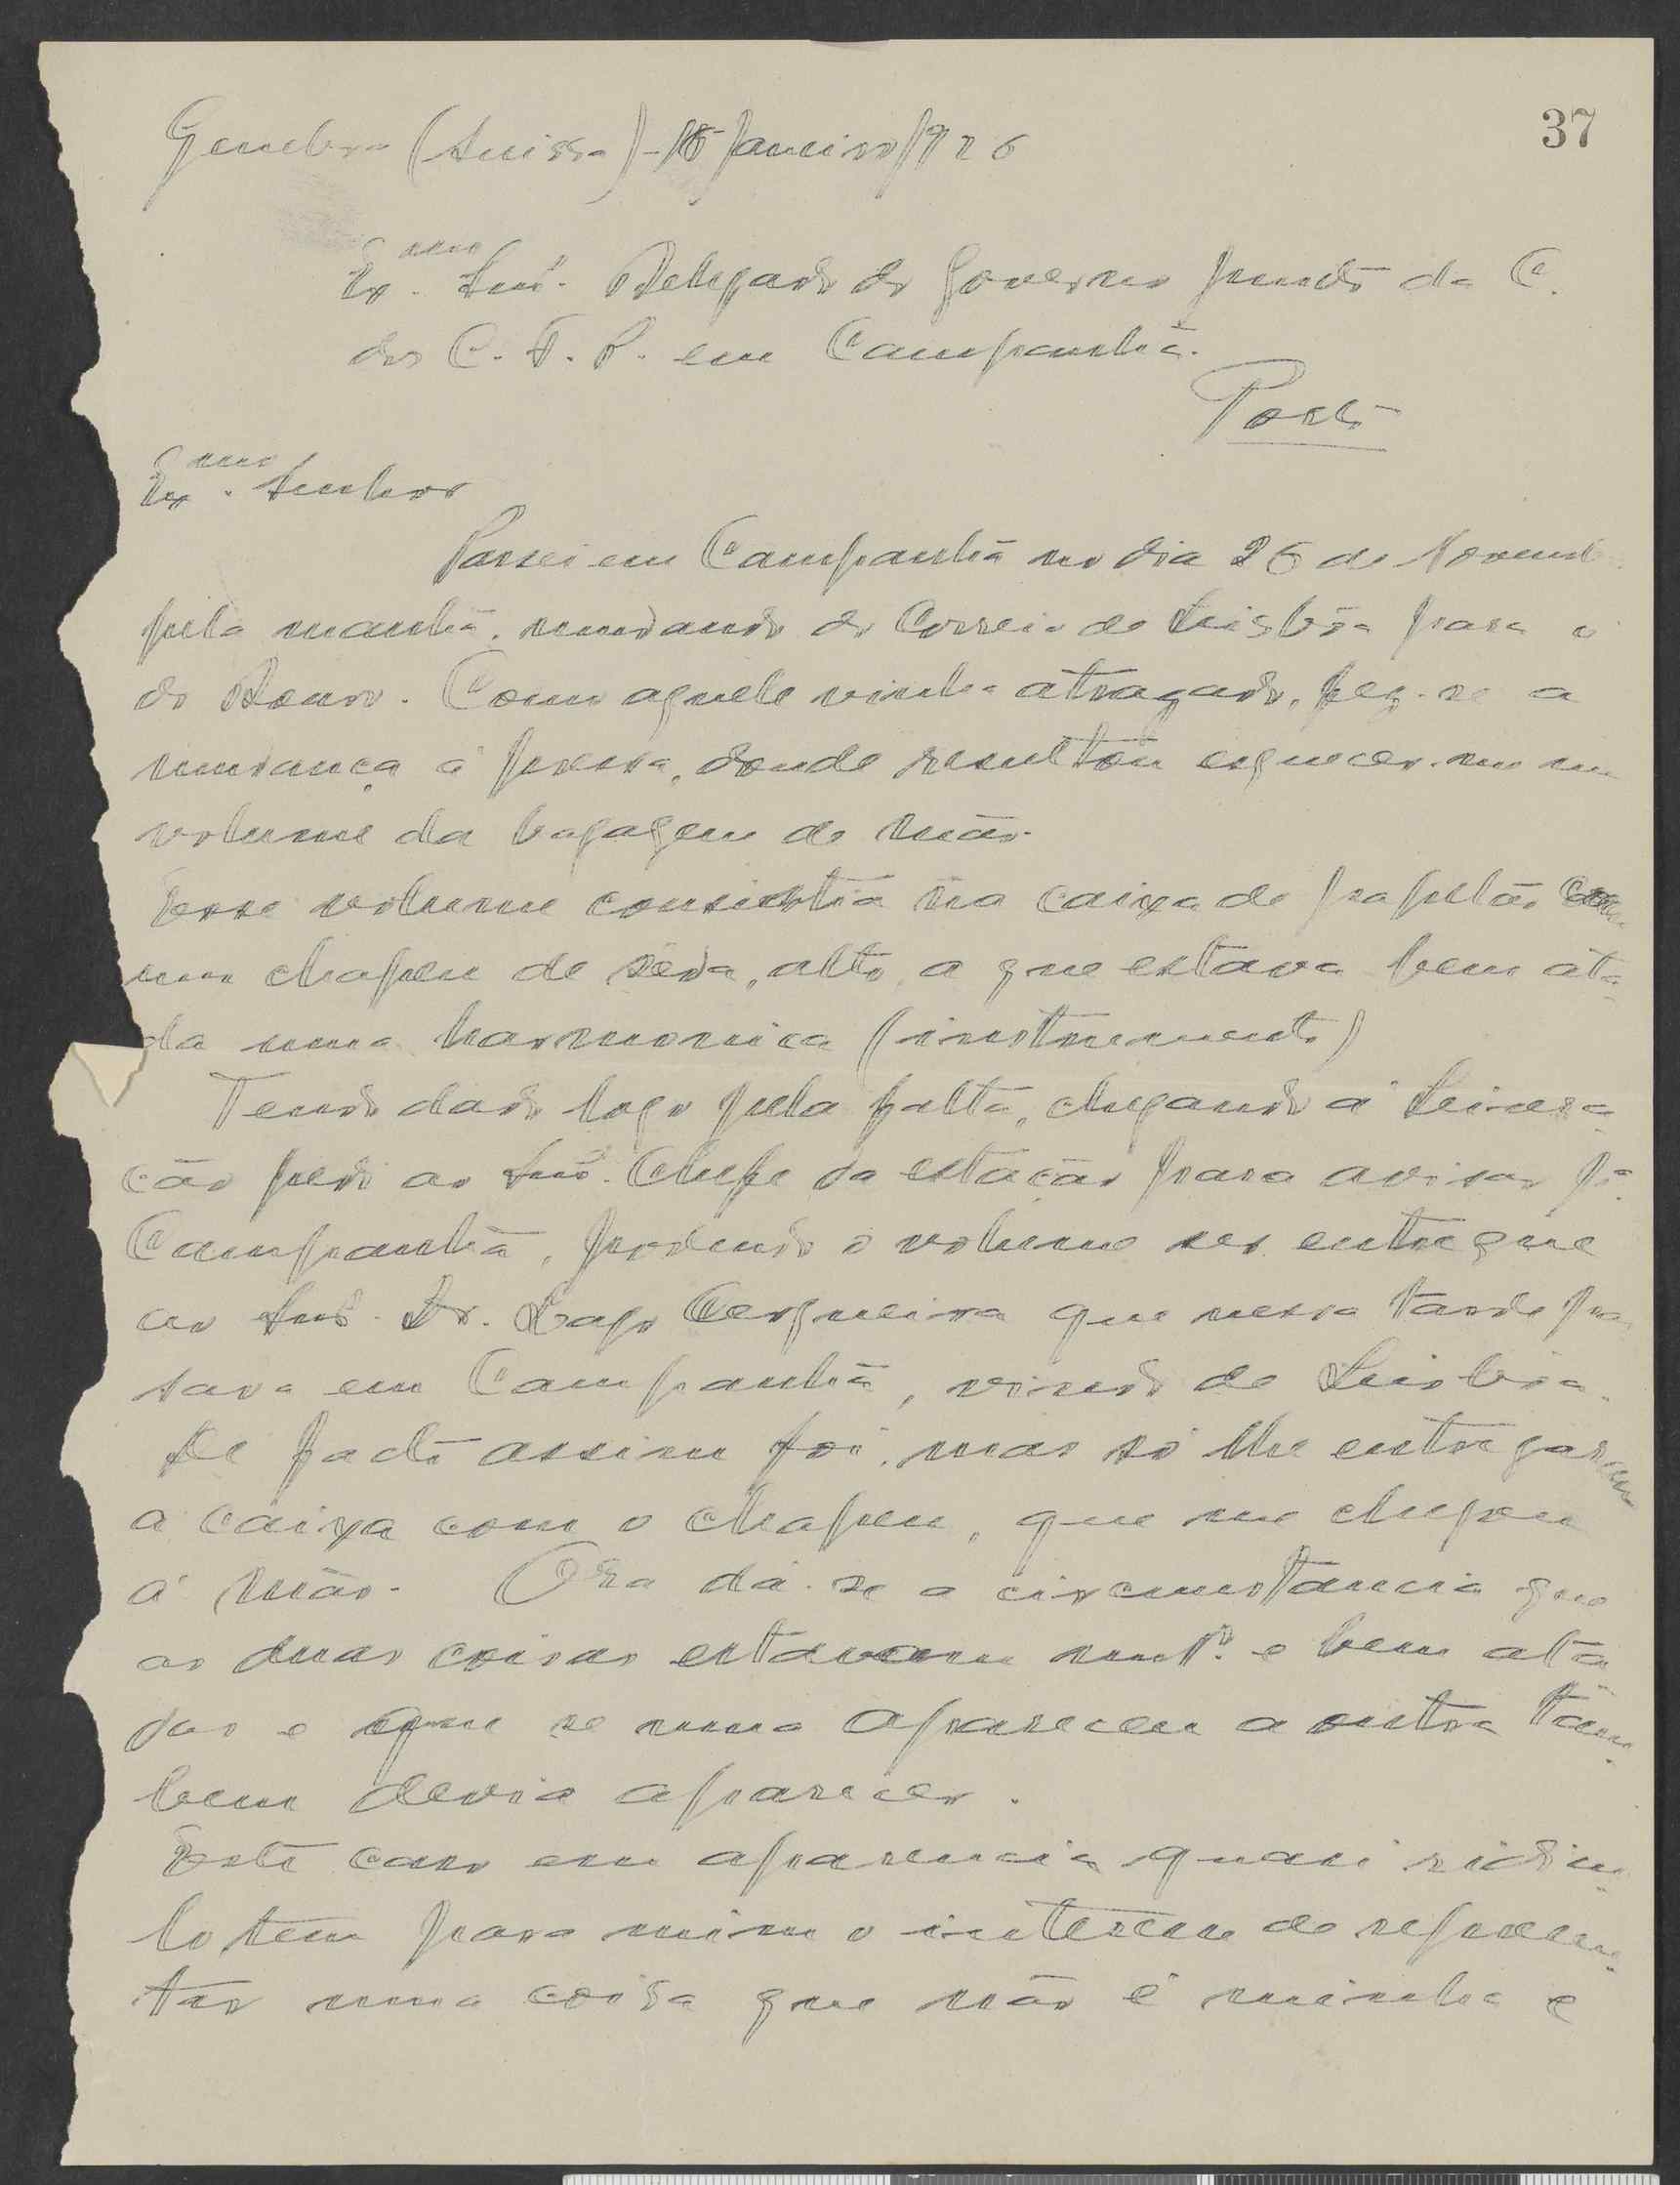 37
Genebra (Suissa) - 15 Janeiro 1926
Ex.mo Snr. Delegado do Governo junto da C.
dos C. F. P. em Campanhã.
Porto
Ex.mo Senhor
Passei em Campanhã no dia 26 de Novemb
pela manhã, mudando do Correio de Lisbôa para o
do Douro. Como aquele vinha atrazado, fez-se a
mudança á pressa, donde resultou esquecer-me um
volume da bagagem de mão.
Esse volume consistia na caixa de papelão com
um chapeu de sêda, alto, a que estava bem ata-
da uma harmonica (instrumento)
Tendo dado logo pela falta, chegando á Livra-
ção pedi ao Snr. Chefe da estação para avisar p.a
Campanhã, podendo o volume ser entregue
ao Snr. Dr. Lago Cerqueira que nessa tarde pas
sava em Campanhã, vindo de Lisbôa.
De facto assim foi, mas só lhe entregaram
a caixa com o chapeu, que me chegou
á mão. Ora dá-se a circumstancia que
as duas coisas estavam mt.o e bem ata
das e que se uma apareceu a outra tam-
bem devia aparecer.
Este caso em aparencia quasi ridicu-
lo tem para mim o interesse de represen-
tar uma coisa que não é minha e